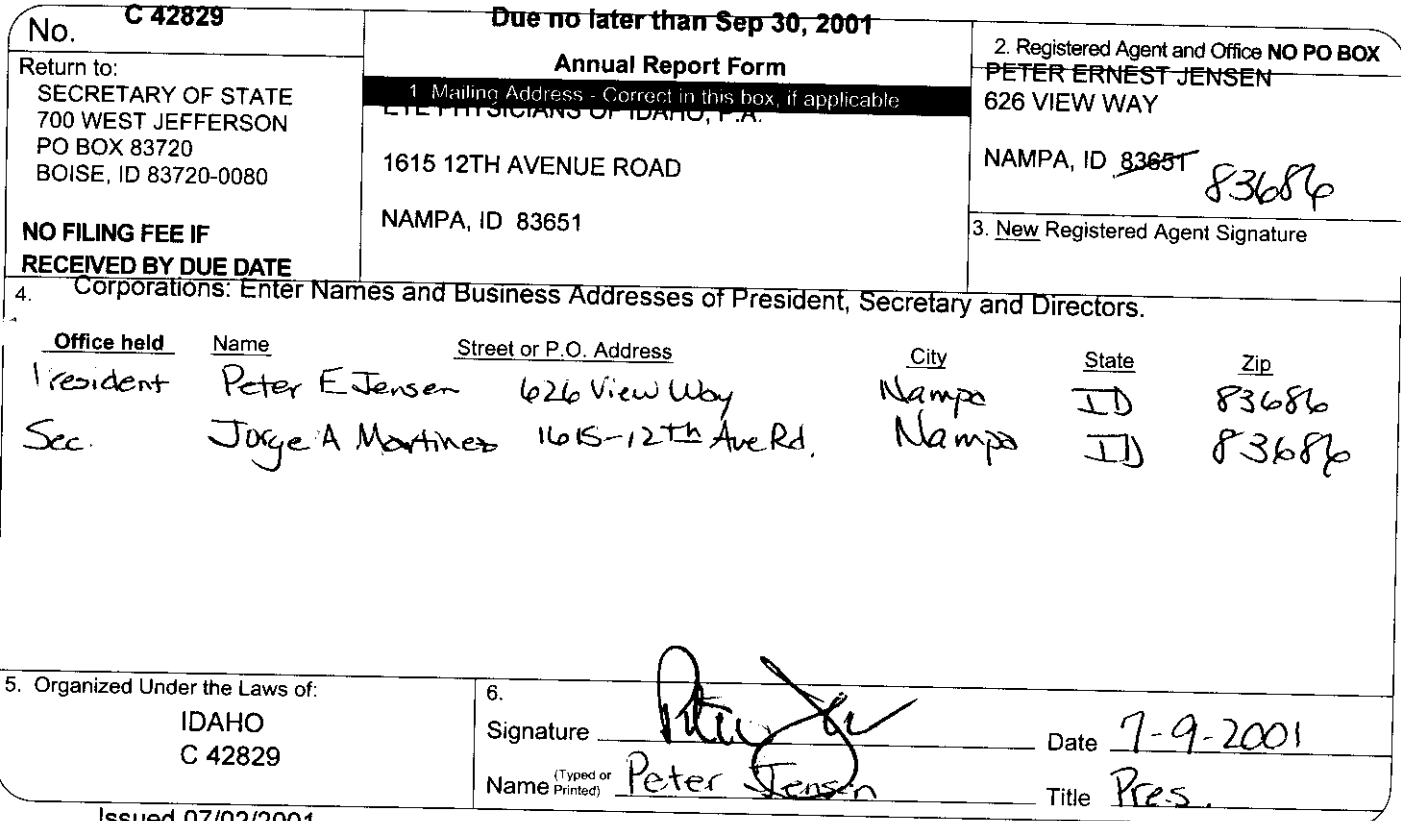 No. C 42829
Return to:
SECRETARY OF STATE
700 WEST JEFFERSON
PO BOX 83720
BOISE, ID 83720-0080
NO FILING FEE IF
RECEIVED BY DUE DATE
Due no later than Sep 30, 2001
Annual Report Form
1 Mailing Address - Correct in this box, if applicable
EYE PHYSICIANS OF IDAHO, P.A.
1615 12TH AVENUE ROAD
NAMPA, ID 83651
2. Registered Agent and Office NO PO BOX
PETER ERNEST JENSEN
626 VIEW WAY
NAMPA, ID 83651 83686
3. New Registered Agent Signature
4. Corporations: Enter Names and Business Addresses of President, Secretary and Directors.
Office held Name Street or P.O. Address City State Zip
President Peter E Jensen 626 View Way Nampa ID 83686
Sec. Jorge A Martinez 1615-12th Ave Rd. Nampa ID 83686
5. Organized Under the Laws of:
IDAHO
C 42829
6.
Signature Date 7-9-2001
Name (Typed or Printed) Peter Jensen Title Pres.
Issued 07/02/2001